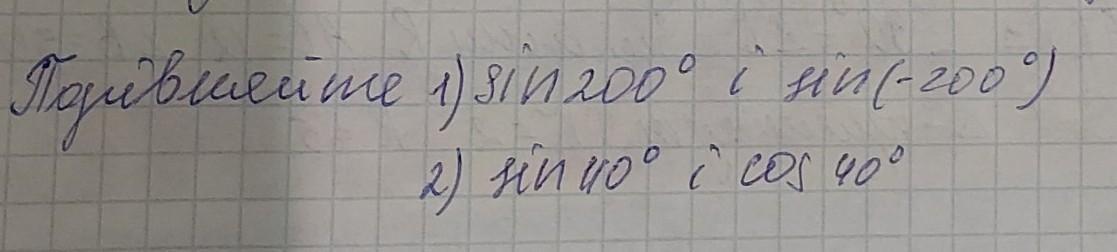 Порівняйте 1) sin 200° і sin(-200°)
2) sin 40° і cos 40°